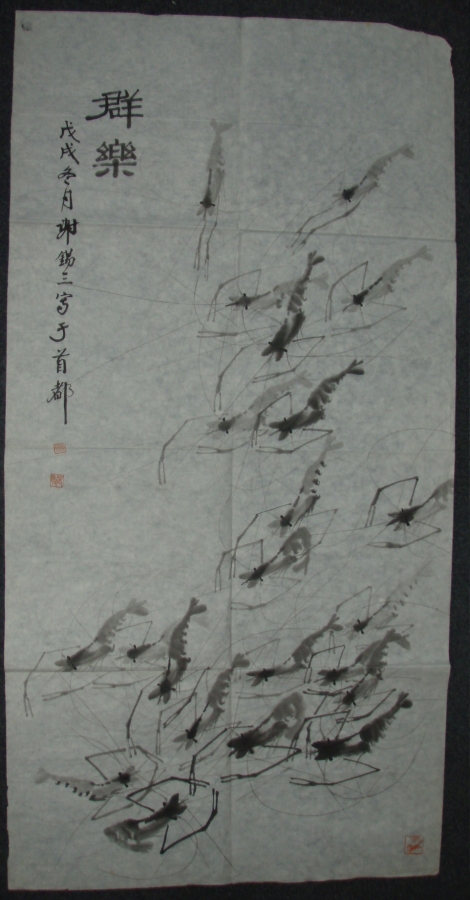 群樂
戊戌冬月謝錫三寫于首都